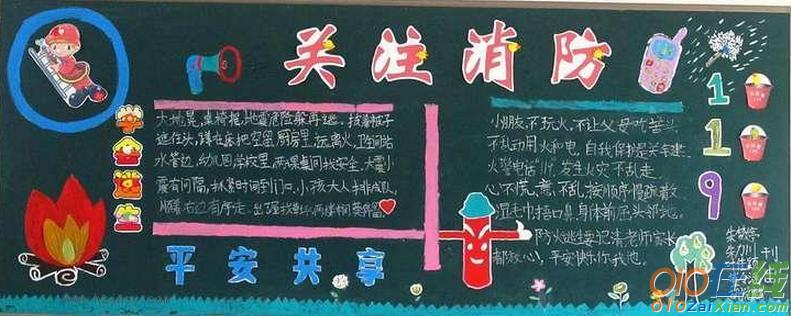 关注消防
大地晃,桌椅摇,地震危险躲再逃。拔着被子
遮住头,蹲在床把空留,厨房里,远离火,卫生间站
水管边,幼儿园学校里,两课桌间找安全,大震小
震有间隔,抓紧时间到门口。小孩大人排成队,
顺着右边有序走。
平安共享
小朋友,不玩火,不让父母吃苦头,
不乱动用火和电,自我保护是关键,
火警电话"119",发生火灾不乱走
心不慌,意不乱,按顺序慢疏散,
湿毛巾捂口鼻,身体前屈头部地。
防火逃生要记清老师家长
都放心,平安快乐你我他。
119
刊
010在线
010ZaiXian.com